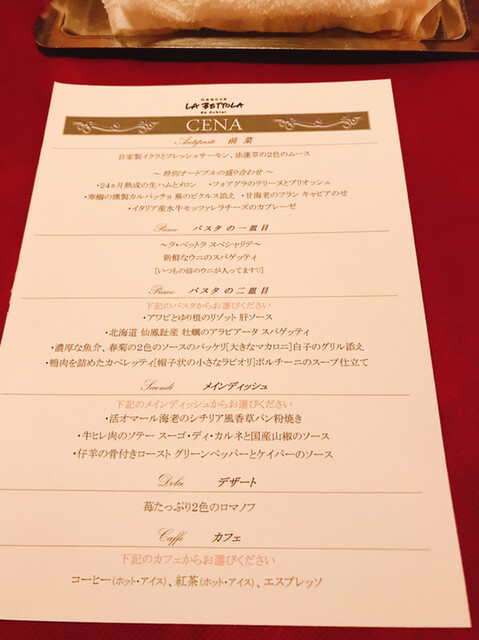 LA BETTOLA
da Ochiai
CENA
Antipasto 前菜
自家製イクラとフレッシュサーモン、法蓮草の2色のムース
～特別オードブルの盛り合わせ～
・24ヵ月熟成の生ハムとメロン ・フォアグラのテリーヌとブリオッシュ
・寒鰤の燻製カルパッチョ 蕪のピクルス添え ・甘海老のフラン キャビアのせ
・イタリア産水牛モッツァレラチーズのカプレーゼ
Primo パスタの一皿目
～ラ・ベットラ スペシャリテ～
新鮮なウニのスパゲッティ
[いつもの倍のウニが入ってます♡]
Primo パスタの二皿目
下記のパスタからお選びください
・アワビとゆり根のリゾット 肝ソース
・北海道 仙鳳趾産 牡蠣のアラビアータ スパゲッティ
・濃厚な魚介、春菊の2色のソースのパッケリ[大きなマカロニ]白子のグリル添え
・鴨肉を詰めたカペレッティ[帽子状の小さなラビオリ]ポルチーニのスープ仕立て
Secondi メインディッシュ
下記のメインディッシュからお選びください
・活オマール海老のシチリア風香草パン粉焼き
・牛ヒレ肉のソテー スーゴ・ディ・カルネと国産山椒のソース
・仔羊の骨付きロースト グリーンペッパーとケイパーのソース
Dolce デザート
苺たっぷり2色のロマノフ
Caffè カフェ
下記のカフェからお選びください
コーヒー(ホット・アイス)、紅茶(ホット・アイス)、エスプレッソ